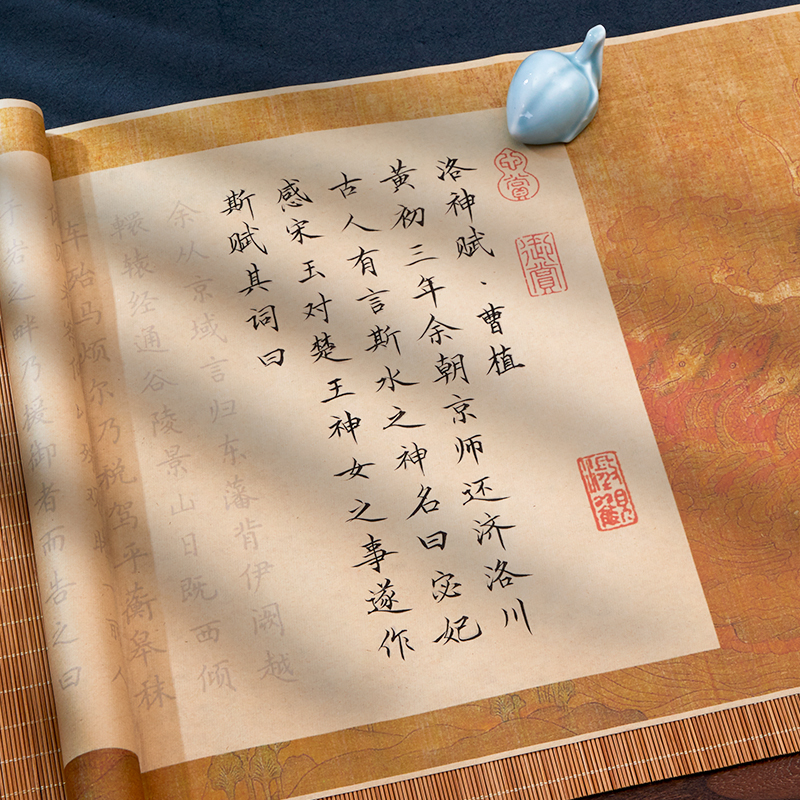 洛神赋·曹植
黄初三年余朝京师还济洛川
古人有言斯水之神名曰宓妃
感宋玉对楚王神女之事遂作
斯赋其词曰
余从京域言归东藩肯伊阙越
轘辕经通谷陵景山日既西倾
车殆马烦尔乃税驾乎蘅皋秣
岩之畔乃援御者而告之曰
御赏